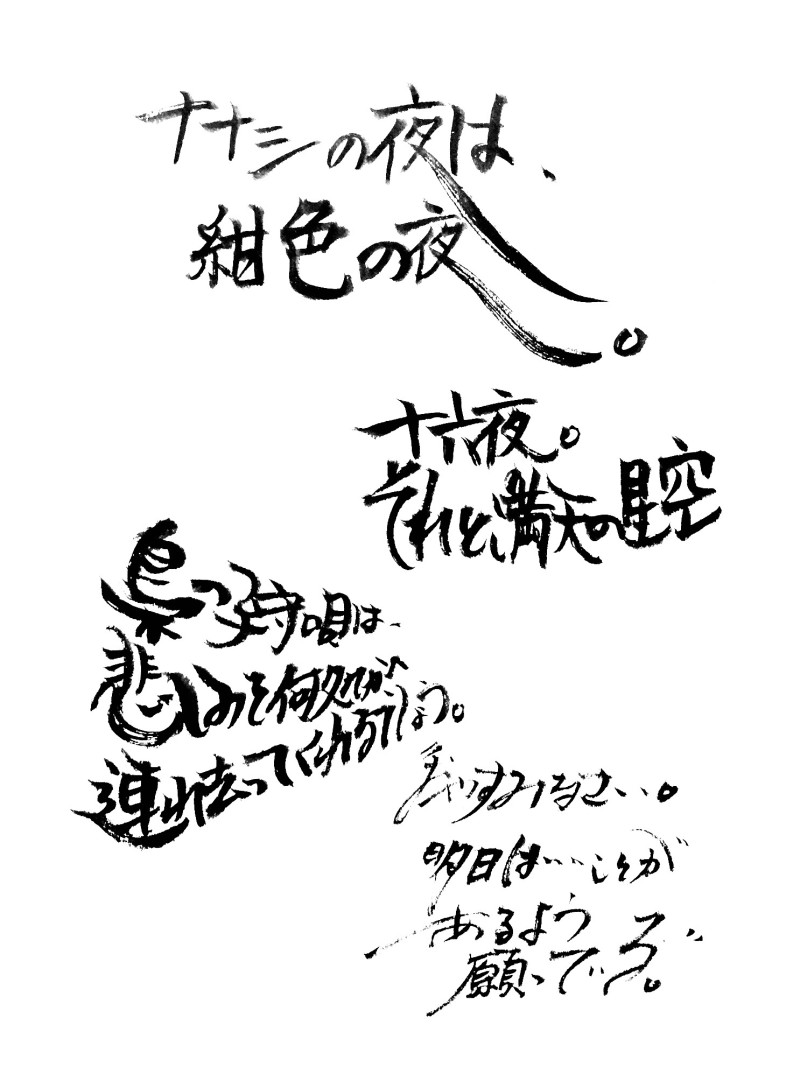 ナナシの夜は、
紺色の夜。
十六夜。
それと、満天の星空
梟の子守唄は、
悲しみを何処かへ
連れ去ってくれるでしょう。
おやすみなさい。
明日はいいことが
あるよう
願ってい